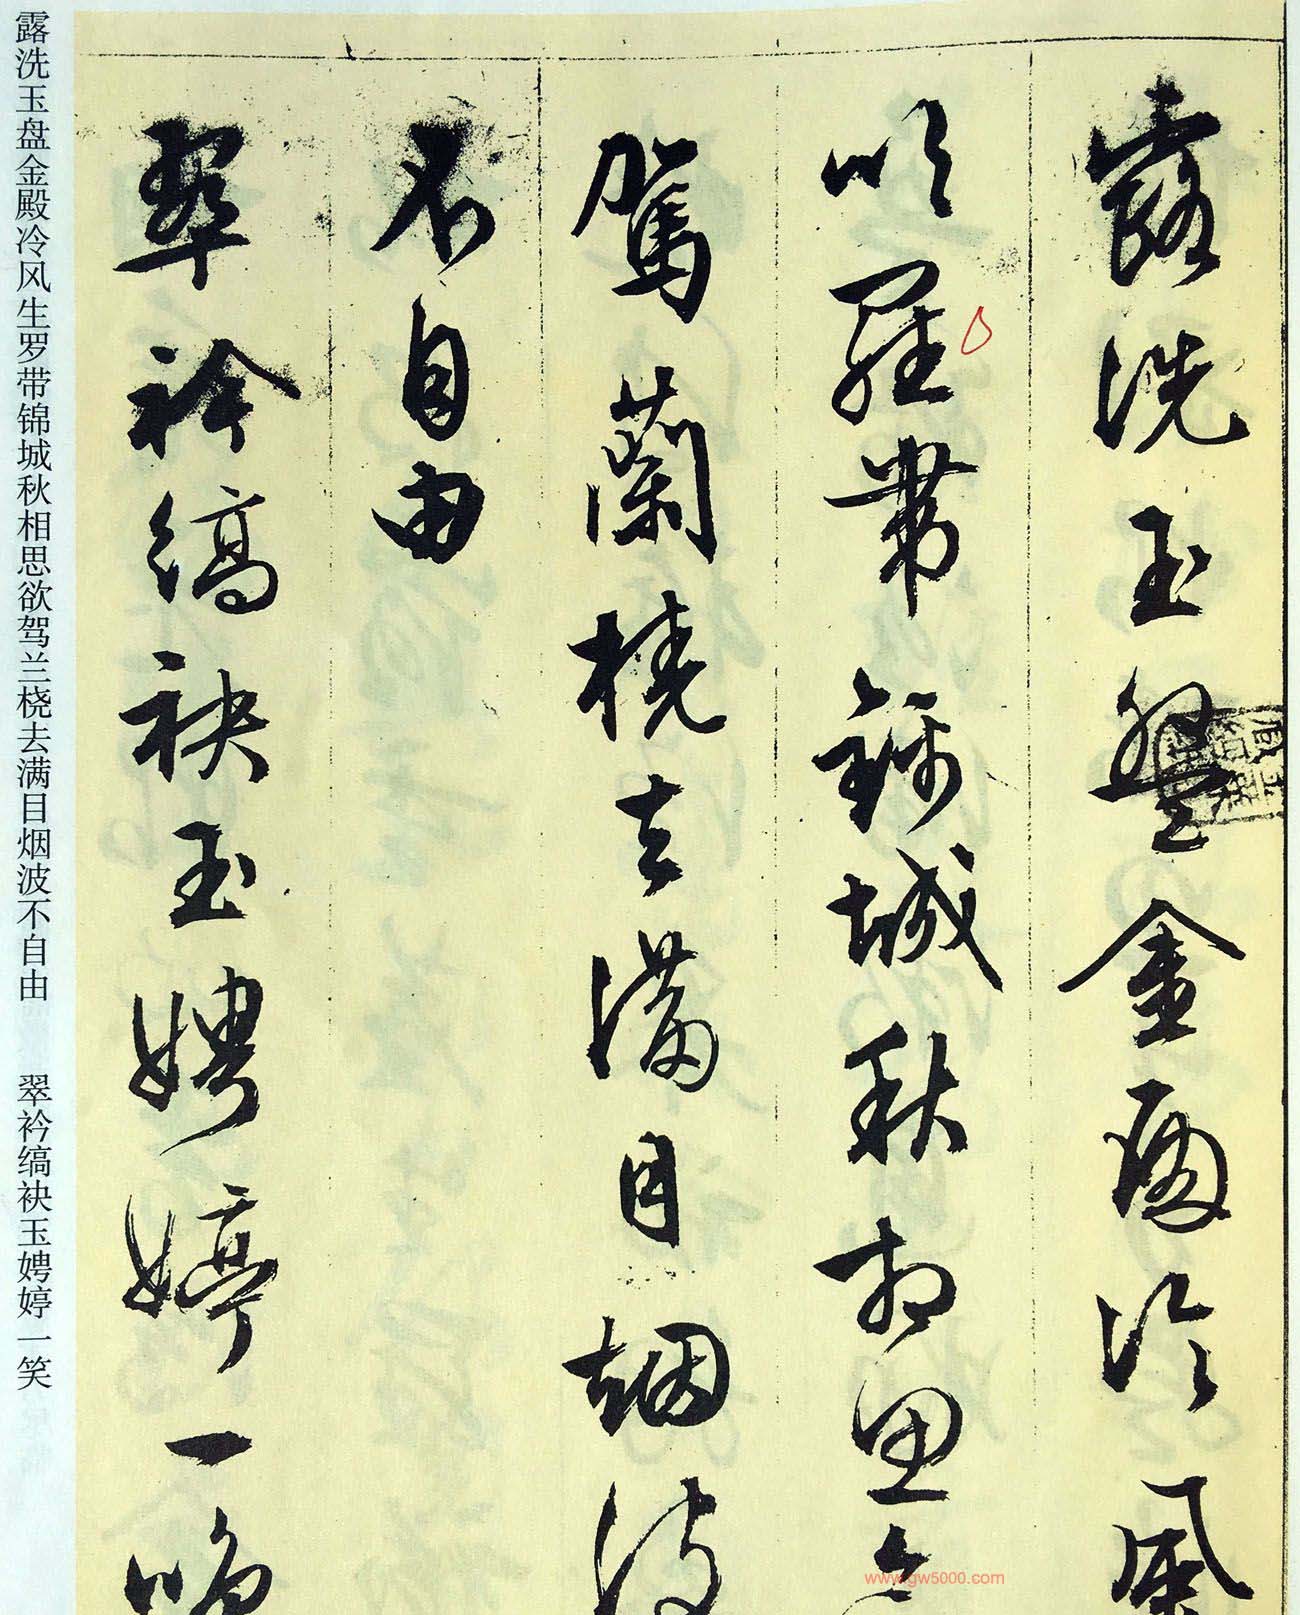 露洗玉盤金殿冷風
吹羅帶錦城秋相思
駕蘭橈去滿目烟波
不自由
翠衿縞袂玉娉婷一
露洗玉盘金殿冷风生罗带锦城秋相思欲驾兰桡去满目烟波不自由　翠衿缟袂玉娉婷一笑
www.gw5000.com